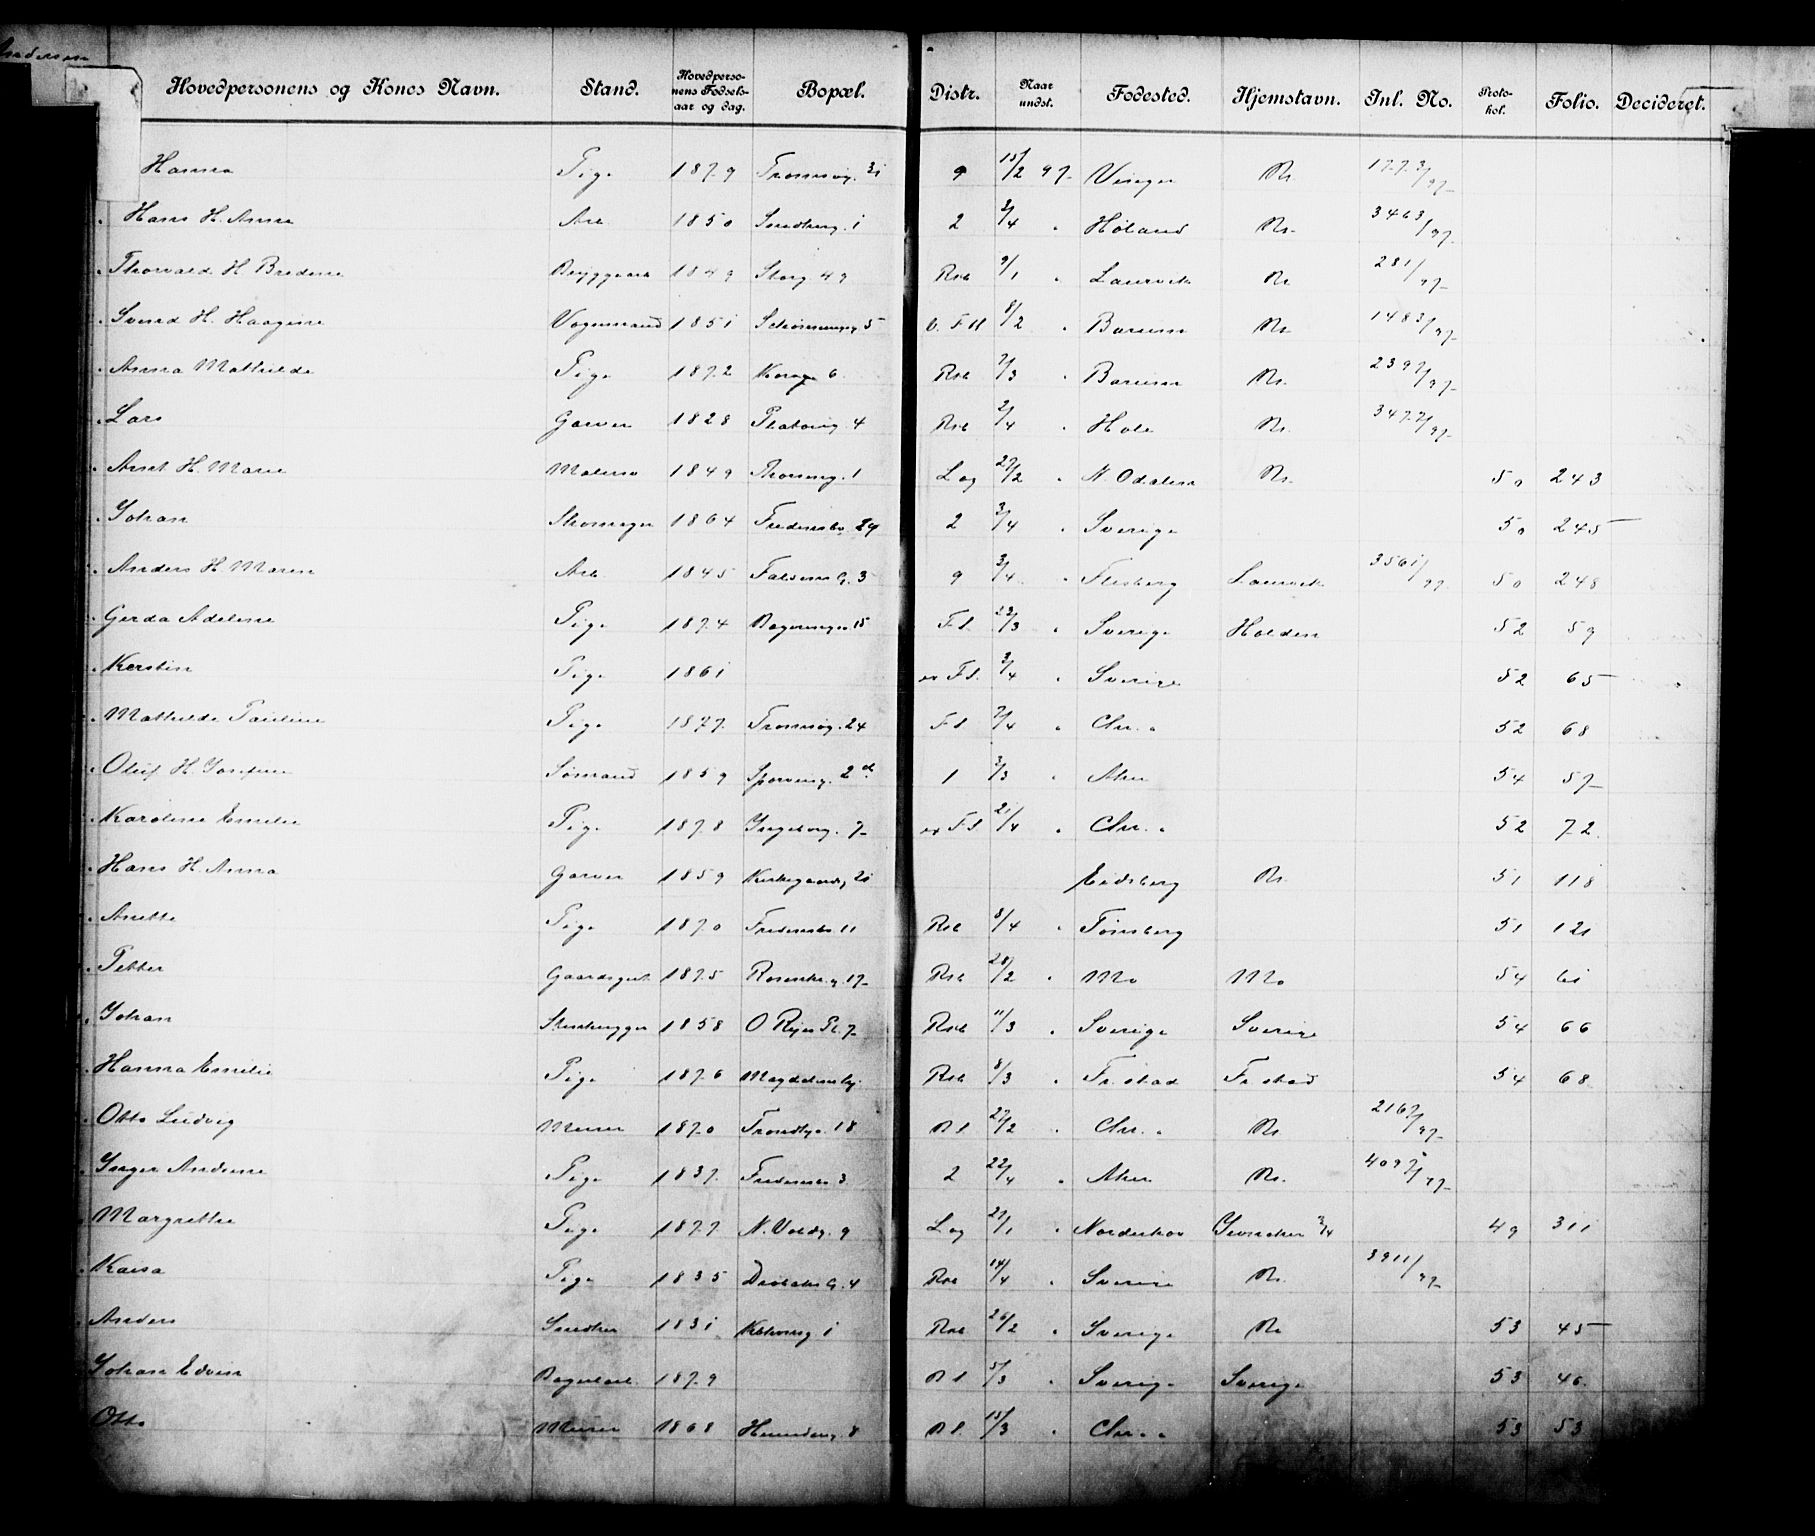 Andersen
Hovedpersonens og Kones Navn. Stand. Hovedpersonens Fødselsaar og dag. Bopæl. Distr. Naar undst. Fødested. Hjemstavn. Inl. No. Protokol. Folio. Decideret.
Hanna Pige 1879 Tromsøg. 31 9 15/2 97 Vinger Kr. 1773/97
Hans H. Anna Arb. 1850 Smedberg. 1 2 3/4 " Høland Kr. 3463/97
Thorvald H. Bredine Bryggearb 1849 Storg 49 Rst 9/1 " Laurvik Kr 281/97
Svend H. Haagine Vognmand 1851 5 8/2 " Bærum Kr. 1483/97
Anna Mathilde Pige 1872 6 Rst 7/3 " Bærum Kr. 2397/97
Lars Garver 1828 Platoug. 4 Rst 2/4 " Hole Kr. 3477/97
Arnt H. Marie Malersv 1849 1 Lag 27/2 " N. Odalen Kr. 50 243
Johan Skomager 1864 Fredensb. 29 2 3/4 " Sverige 50 245
Anders H. Maren Arb. 1845 Falsens G. 3 9 3/4 " Flesberg Laurvik 3561/97 50 248
Gerda Adeline Pige 1874 15 F.l. 22/3 " Sverige Halden 52 59
Kerstin Pige 1861 F.l. 3/4 " Sverige 52 65
Mathilde Pauline Pige 1877 Tromsøg. 24 F.l. 7/4 " Chr. " 52 68
Oluf H. Josefine Sømand 1859 Sporveisg. 2 1 3/3 " Aker 54 57
Karoline Emilie Pige 1878 Ingeborg. 7 F.l 21/4 " Chr. " 52 72.
Hans H. Anna Garver 1859 Kirkegaardsg 21 Eidsberg Kr. 51 118
Anette Pige 1870 Fredensb. 11 Rst 8/4 " Tønsberg 51 121
Petter Gaardsgut. 1875 Rosenkr. g. 17 Rst 28/2 " Mo Mo 54 61
Johan Stenhugger 1858 O Ryes Pl. 7 Rst 11/3 " Sverige Sverige 54 66
Hanna Emilie Pige 1876 Magdeleneg. Rst 8/3 " Fr.stad Fr.stad 54 68
Otto Ludvig Murer 1870 Trondhj. 18 27/2 " Chr. " Kr 2167/97
Inger Andrine Pige 1837 Fredensb 3 2 22/4 " Aker Kr. 4095/97
Margrethe Pige 1877 N. Voldg. 9 Lag 27/1 " Norderhov Jevnaker 3/4 49 311
Kaisa Pige 1835 Drøbaks G. 4 Rst 14/4 " Sverige Kr. 3911/97
Anders Snedker 1831 1 Rst 26/2 " Sverige Kr 53 45
Johan Edvin 1879 5/3 " Sverige Sverige 53 46.
Otto Murer 1868 8 15/3 " Chr. " 53 53